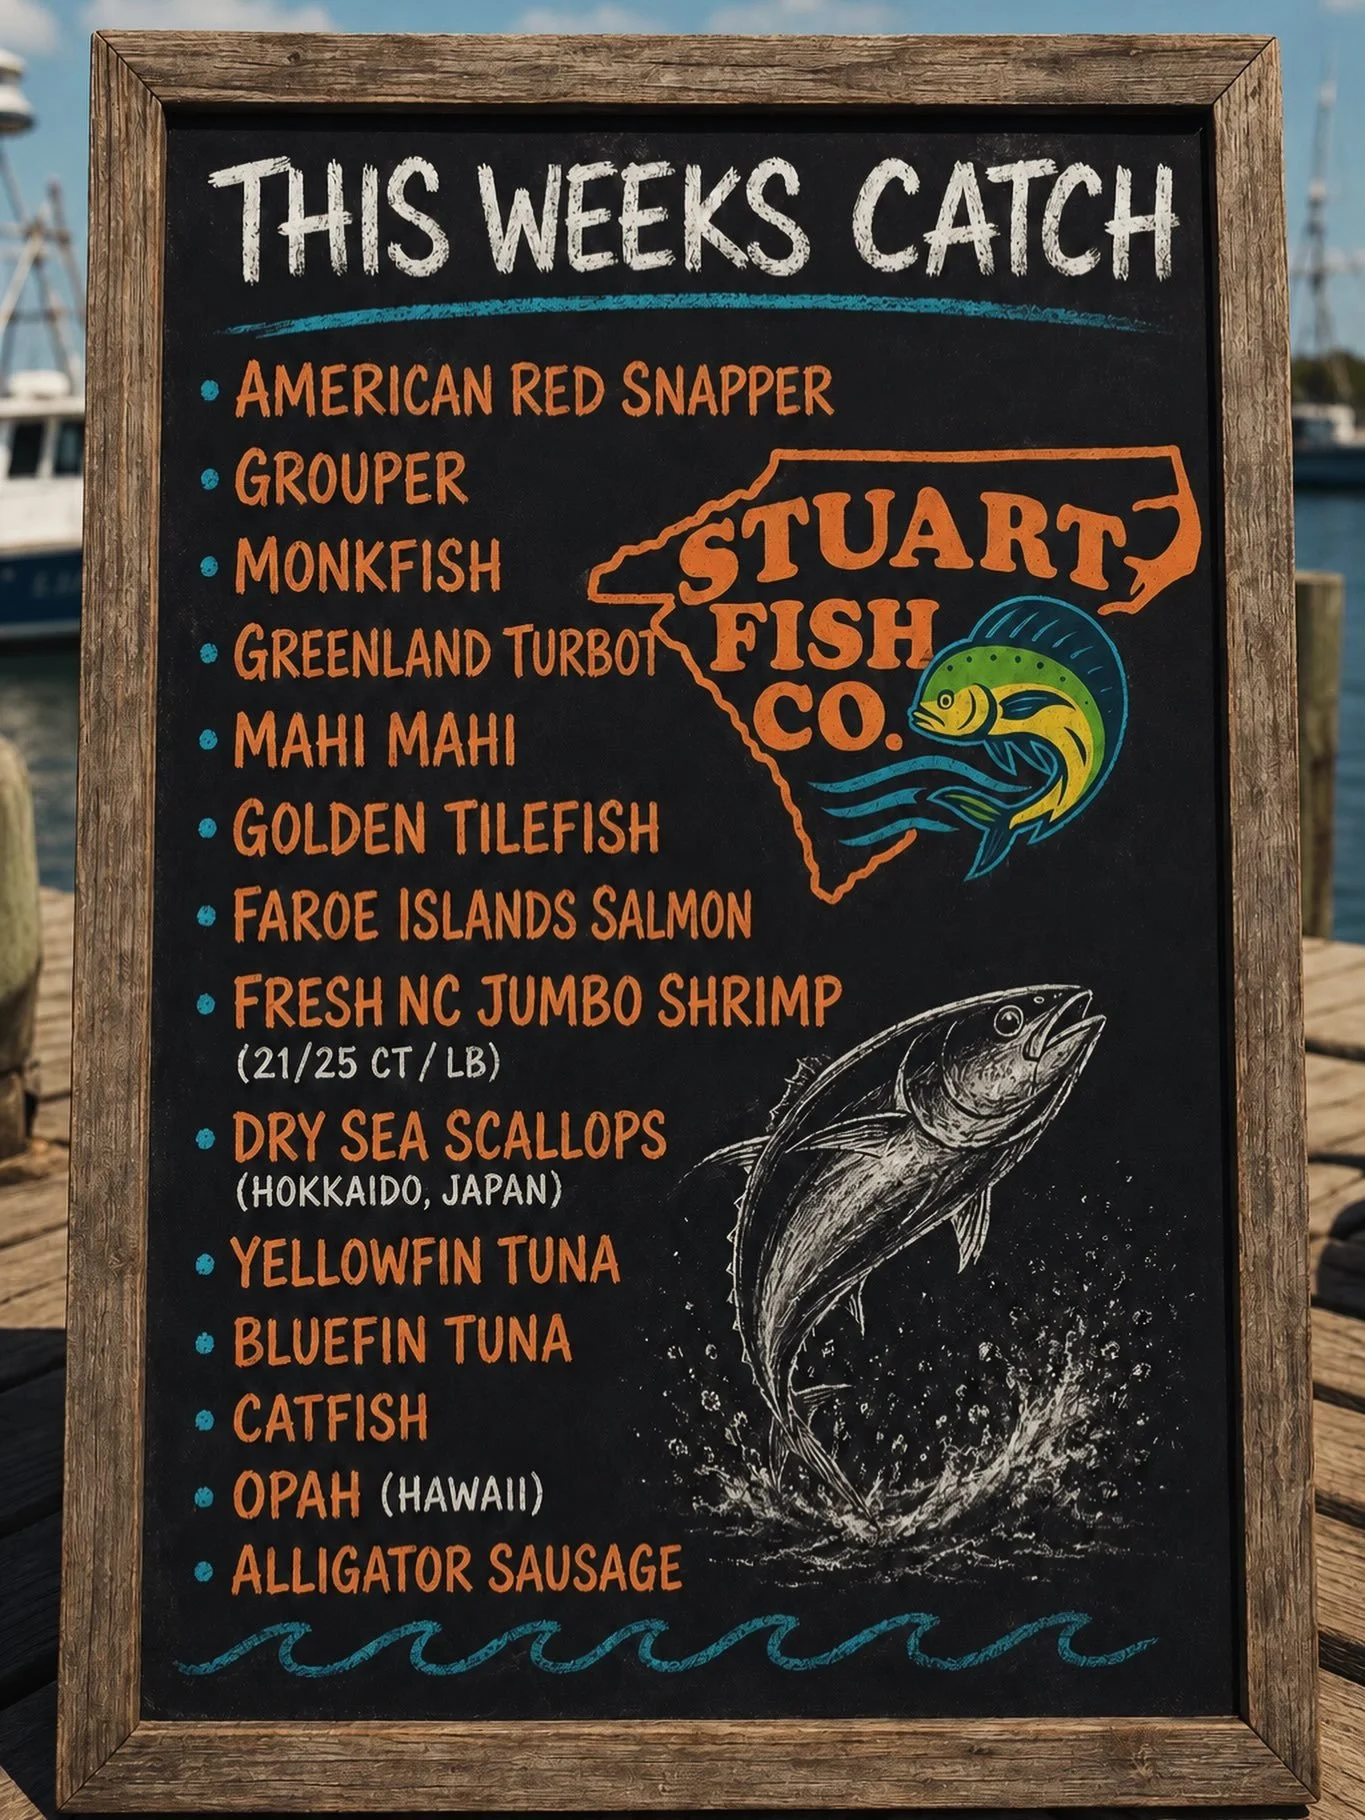 THIS WEEKS CATCH
• AMERICAN RED SNAPPER
• GROUPER
• MONKFISH
• GREENLAND TURBOT
• MAHI MAHI
• GOLDEN TILEFISH
• FAROE ISLANDS SALMON
• FRESH NC JUMBO SHRIMP
(21/25 CT/LB)
• DRY SEA SCALLOPS
(HOKKAIDO, JAPAN)
• YELLOWFIN TUNA
• BLUEFIN TUNA
• CATFISH
• OPAH (HAWAII)
• ALLIGATOR SAUSAGE
STUART
FISH
CO.